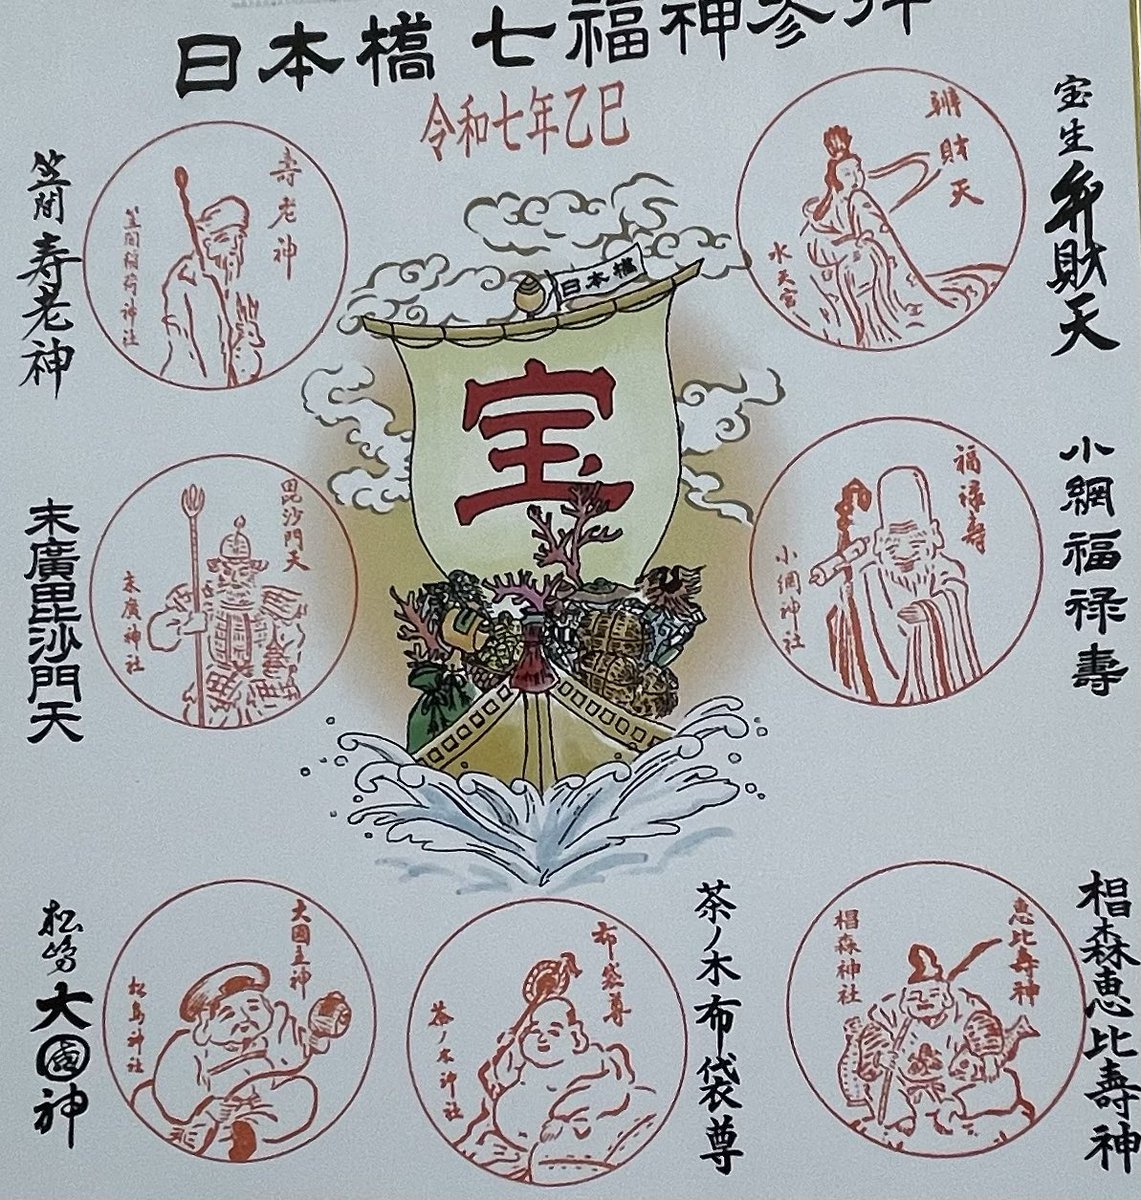 日本橋 七福神參拝
令和七年乙巳
宝生弁財天
辨財天
水天宮
笠間寿老神
寿老神
笠間稲荷神社
日本橋
宝
小網福禄壽
福禄壽
小網神社
末廣毘沙門天
毘沙門天
末廣神社
椙森恵比壽神
恵比壽神
椙森神社
茶ノ木布袋尊
布袋尊
茶ノ木神社
松嶋大國神
大國主神
松島神社